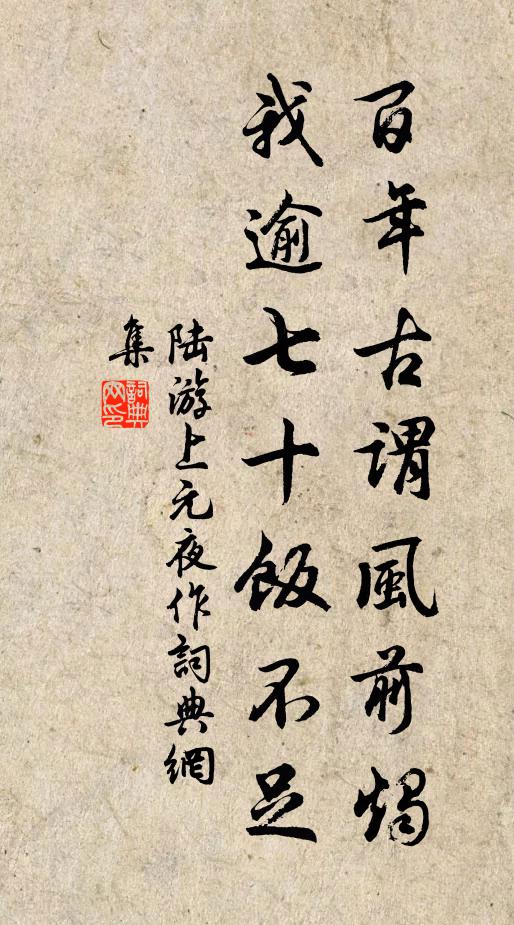 百年古谓風前燭
我逾七十飯不足
陆游上元夜作詞典網
集
詞典
网印